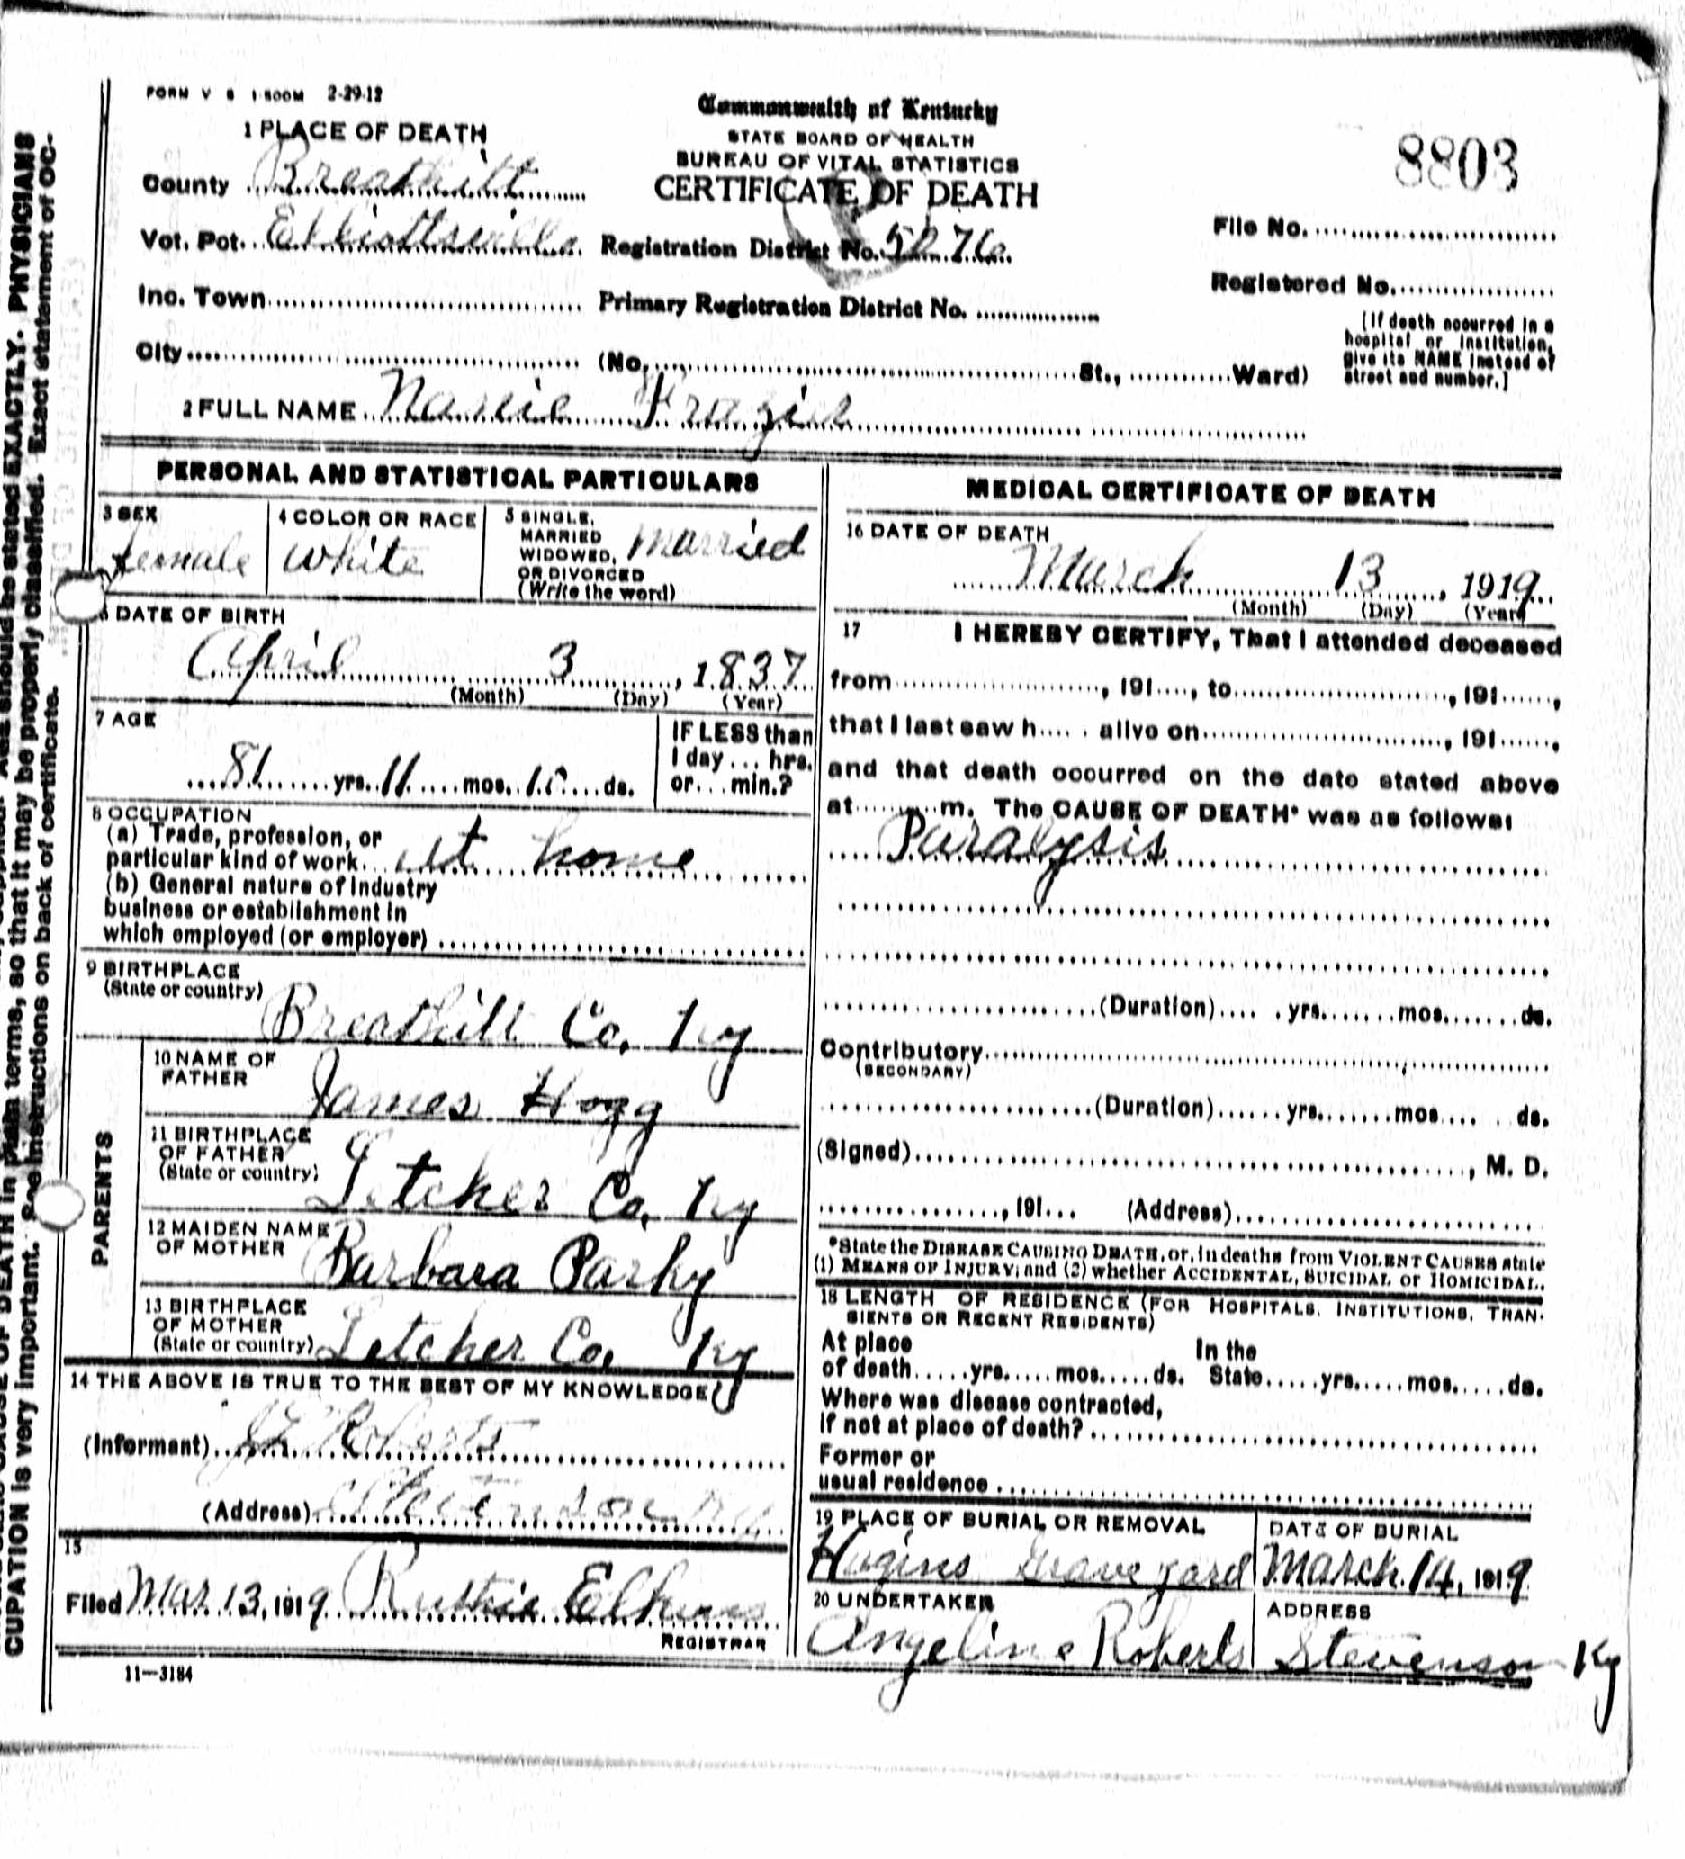 FORM V S 1-500M 2-29-12
Commonwealth of Kentucky
STATE BOARD OF HEALTH
BUREAU OF VITAL STATISTICS
CERTIFICATE OF DEATH
8803
1 PLACE OF DEATH
County Breathitt
Vot. Pct. Elliottsville Registration District No. 5076
File No.
Inc. Town Primary Registration District No.
Registered No.
City (No. St., Ward)
[If death occurred in a
hospital or institution,
give its NAME instead of
street and number.]
2 FULL NAME Nancie Frazier
PERSONAL AND STATISTICAL PARTICULARS
3 SEX
female
4 COLOR OR RACE
White
5 SINGLE,
MARRIED
WIDOWED,
OR DIVORCED
(Write the word)
Married
6 DATE OF BIRTH
April 3, 1837
(Month) (Day) (Year)
7 AGE
81 yrs. 11 mos. ds.
IF LESS than
1 day... hrs.
or... min.?
8 OCCUPATION
(a) Trade, profession, or
particular kind of work at home
(b) General nature of Industry
business or establishment in
which employed (or employer)
9 BIRTHPLACE
(State or country)
Breathitt Co. Ky
PARENTS
10 NAME OF
FATHER
James Hogg
11 BIRTHPLACE
OF FATHER
(State or country)
Letcher Co. Ky
12 MAIDEN NAME
OF MOTHER
Barbara
13 BIRTHPLACE
OF MOTHER
(State or country)
Letcher Co. Ky
14 THE ABOVE IS TRUE TO THE BEST OF MY KNOWLEDGE
(Informant) Roberts
(Address) Stevenson Ky
15
Filed Mar 13, 1919 Ruthie Elkins
REGISTRAR
11—3184
MEDICAL CERTIFICATE OF DEATH
16 DATE OF DEATH
March 13, 1919
(Month) (Day) (Year)
17 I HEREBY CERTIFY, That I attended deceased
from , 191 , to , 191 ,
that I last saw h alive on , 191 ,
and that death occurred on the date stated above
at m. The CAUSE OF DEATH* was as follows:
Paralysis
(Duration) yrs. mos. ds.
Contributory
(SECONDARY)
(Duration) yrs. mos. ds.
(Signed) , M. D.
, 191 (Address)
*State the DISEASE CAUSING DEATH, or, in deaths from VIOLENT CAUSES state
(1) MEANS OF INJURY; and (2) whether ACCIDENTAL, SUICIDAL or HOMICIDAL.
18 LENGTH OF RESIDENCE (FOR HOSPITALS, INSTITUTIONS, TRAN-
SIENTS OR RECENT RESIDENTS)
At place In the
of death yrs. mos. ds. State yrs. mos. ds.
Where was disease contracted,
if not at place of death?
Former or
usual residence
19 PLACE OF BURIAL OR REMOVAL
Hogins Grave yard
DATE OF BURIAL
March 14, 1919
20 UNDERTAKER
Angeline Roberts
ADDRESS
Stevenson Ky
AGE should be stated EXACTLY. PHYSICIANS
DEATH in plain terms, so that it may be properly classified. Exact statement of OC-
CUPATION is very important. See instructions on back of certificate.